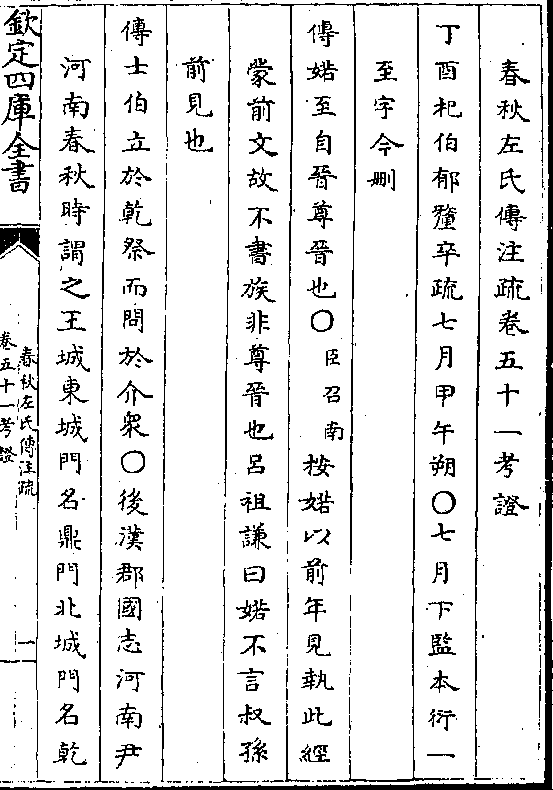 春秋左氏傳注疏卷五十一考證
丁酉𣏌伯郁釐卒疏七月甲午朔〇七月下監本衍一
至字今刪
傳婼至自晉尊晉也〇臣召南按婼以前年見執此經
蒙前文故不書族非尊晉也呂祖謙曰婼不言叔孫
前見也
傳士伯立於乾祭而問於介衆〇後漢郡國志河南尹
河南春秋時謂之王城東城門名鼎門北城門名乾
欽定四庫全書
春秋左氏傳注疏
卷五十一考證
一